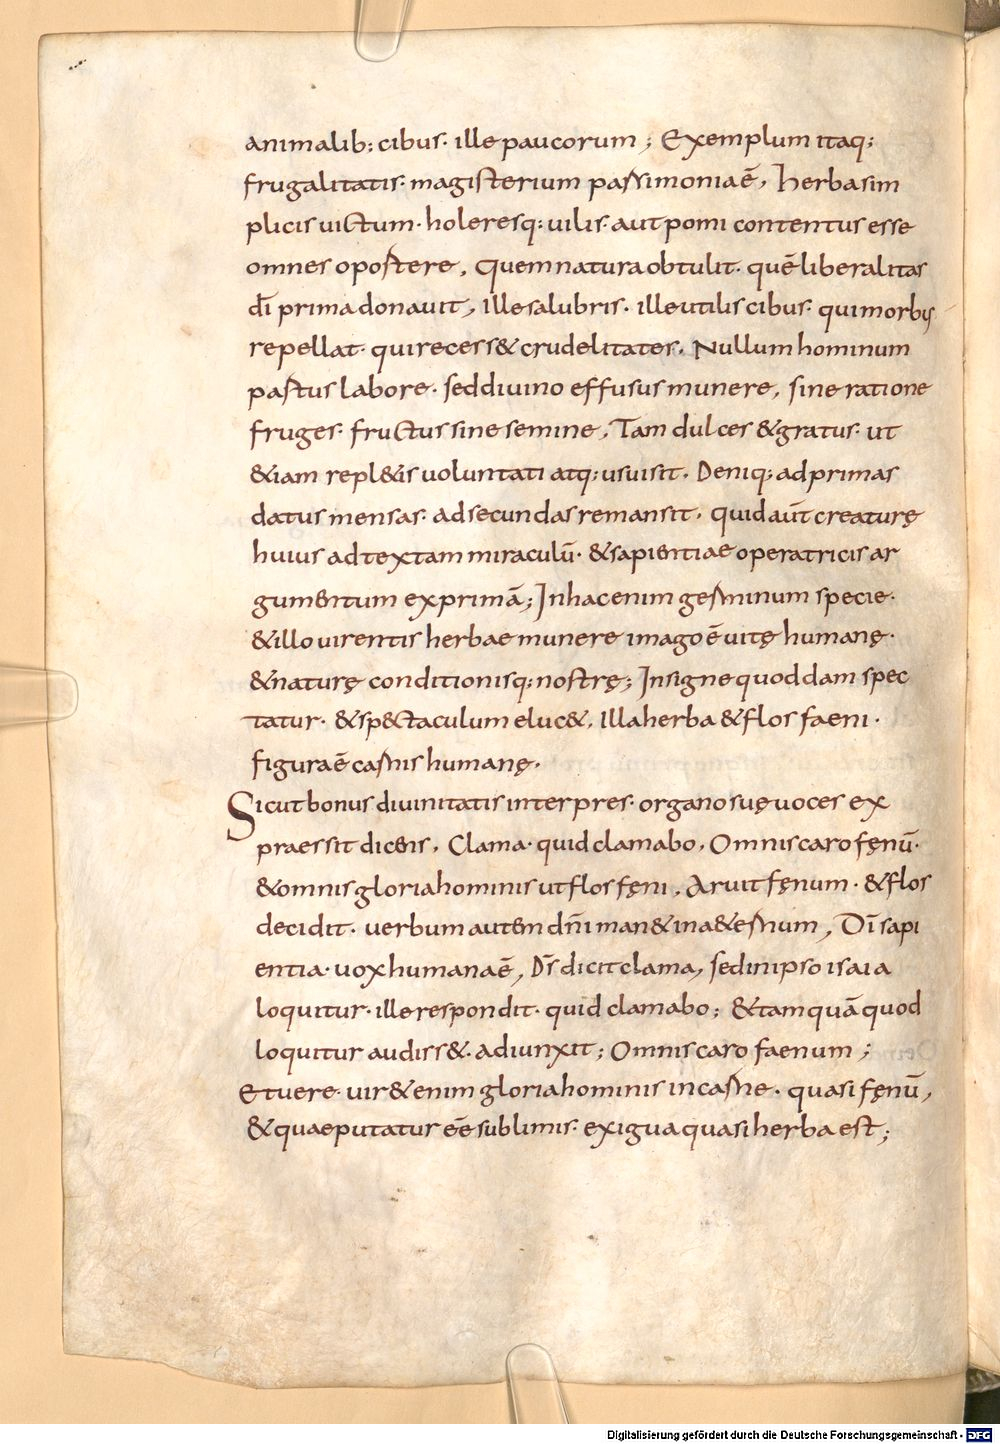 animalib; cibus· ille paucorum; Exemplum itaq;
frugalitatis· magisterium parsimoniaē, herba sim
plicis uictum· holeresq; uilis· aut pomi contentus esse
omnes oportere, Quem natura obtulit· quē liberalitas
dī prima donauit, ille salubris· ille utilis cibus· qui morbis
repellat· qui recess& cruditates· Nullum hominum
partus labore· sed diuino effusus munere, sine ratione
fruges· fructus sine semine, Tam dulces & gratus· ut
&iam repl&is uoluntati atq; usui sit· Deniq; ad primas
datus mensas· ad secundas remansit· quid aūt creaturę
huius ad textam miraculū· & sapientiae operatricis ar
gumentum exprimā; In hac enim germinum specie·
& illo uirentis herbae munere imago ē uitę humanę·
& naturę conditionisq; nostrę; Insigne quoddam spec
tatur· & sp&ctaculum eluc&, illa herba & flos faeni·
figura ē carnis humanę·
Sicut bonus diuinitatis interpres· organo suę uoces ex
praessit dicens, Clama· quid clamabo, Omnis caro fęnū·
& omnis gloria hominis ut flos fęni, Aruit fęnum· & flos
decidit· uerbum autem dn̄i man& in a&ernum, Dī sapi
entia· uox humana ē, Ds̄ dicit clama, sed in ipso isaia
loquitur· ille respondit· quid clamabo; & tamquā quod
loquitur audiss&· adiunxit; Omnis caro faenum;
Et uere· uir& enim gloria hominis in carne· quasi fęnū,
& quae putatur eē sublimis· exigua quasi herba est;
Digitalisierung gefördert durch die Deutsche Forschungsgemeinschaft - DFG